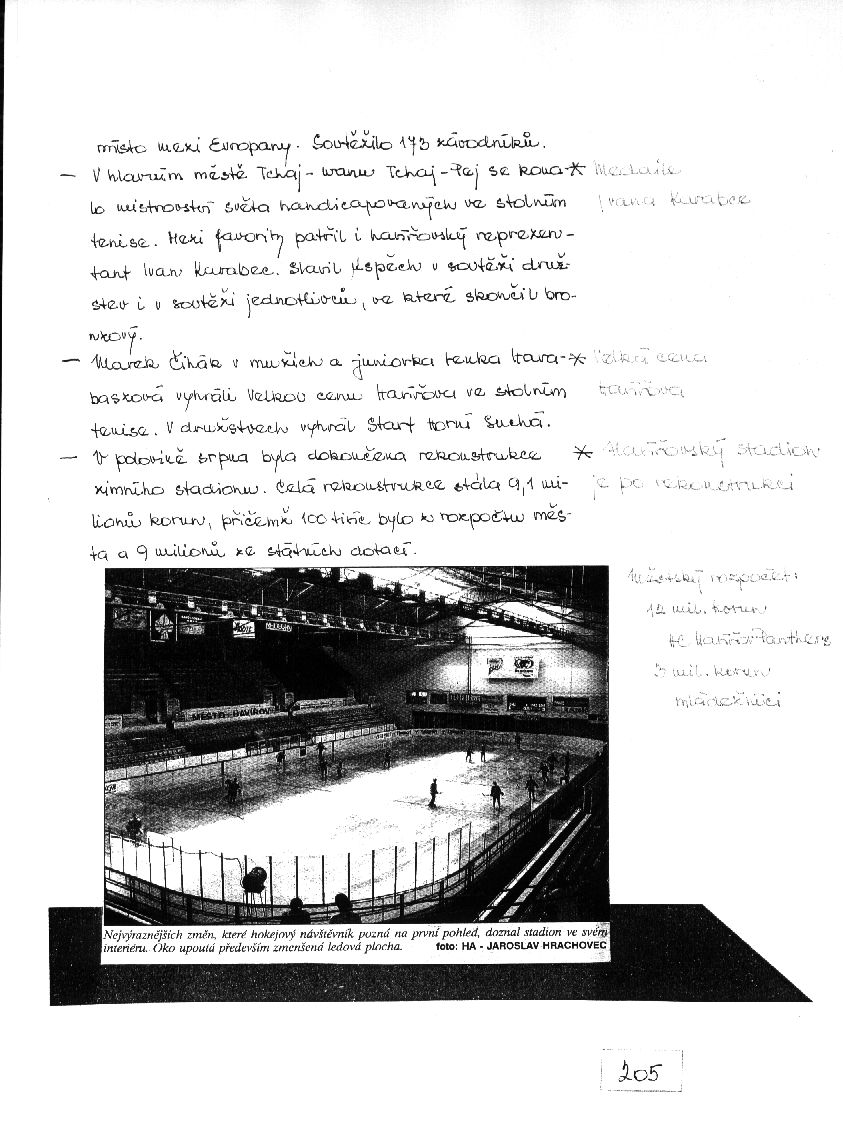 místo mezi Evropany. Soutěžilo 173 závodníků.
— V hlavním městě Tchaj-wanu Tchaj-Pej se kona-* Medaile
lo mistrovství světa handicapovaných ve stolním Ivana Karabce
tenise. Mezi favority patřil i havířovský reprezen-
tant Ivan Karabec. Slavil úspěch v soutěži druž-
stev i v soutěži jednotlivců, ve které skončil bro-
nzový.
— Marek Čihák v mužích a juniorka Lenka Hara-* Velká cena
baszová vyhráli Velkou cenu Havířova ve stolním Havířova
tenise. V družstvech vyhrál Start Horní Suchá.
— V polovině srpna byla dokončena rekonstrukce * Havířovský stadion
zimního stadionu. Celá rekonstrukce stála 9,1 mi- je po rekonstrukci
lionů korun, přičemž 100 tisíc bylo z rozpočtu měs-
ta a 9 milionů ze státních dotací.
Městský rozpočet:
12 mil. korun
HC Havířov Panthers
3 mil. korun
mládežníci
MĚSTO HAVÍŘOV
Nejvýraznějších změn, které hokejový návštěvník pozná na první pohled, doznal stadion ve svém
interiéru. Oko upoutá především zmenšená ledová plocha. foto: HA - JAROSLAV HRACHOVEC
205